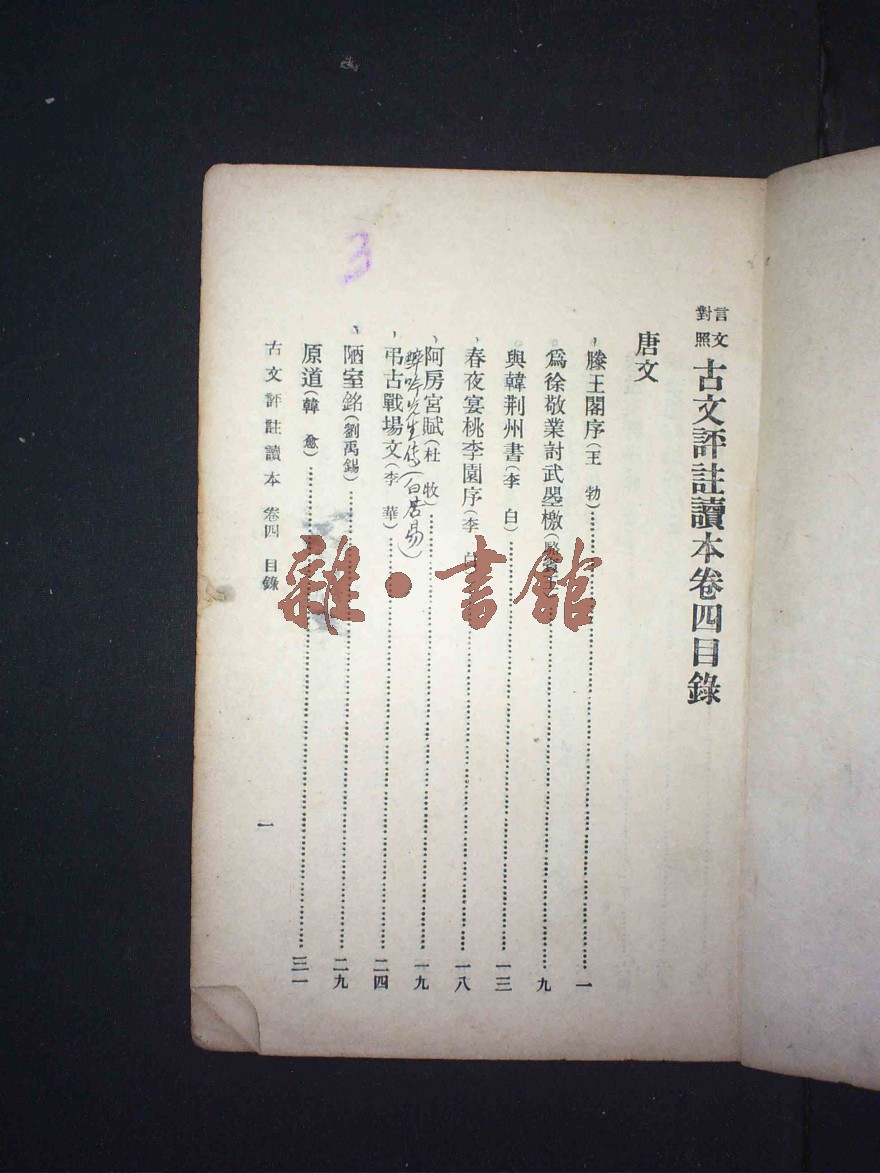 言文對照 古文評註讀本卷四目錄
唐文
滕王閣序(王勃)……一
爲徐敬業討武曌檄(駱賓王)……九
與韓荆州書(李白)……一三
春夜宴桃李園序(李白)……一八
阿房宮賦(杜牧)……一九
醉吟先生传(白居易)
弔古戰場文(李華)……二四
陋室銘(劉禹錫)……二九
原道(韓愈)……三一
古文評註讀本 卷四 目錄
一
3
雜·書館